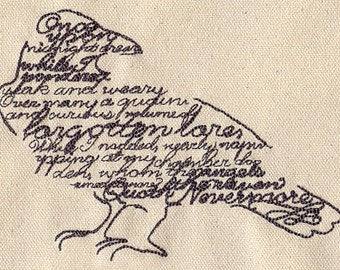 Once
upon
midnight dreary
while I
pondered
weak and weary
Over many a quaint
and curious volume of
forgotten lore,
While I nodded, nearly napp
pping at my chamber doo
den, whom the angels
evermore
Quoth the raven
Nevermore